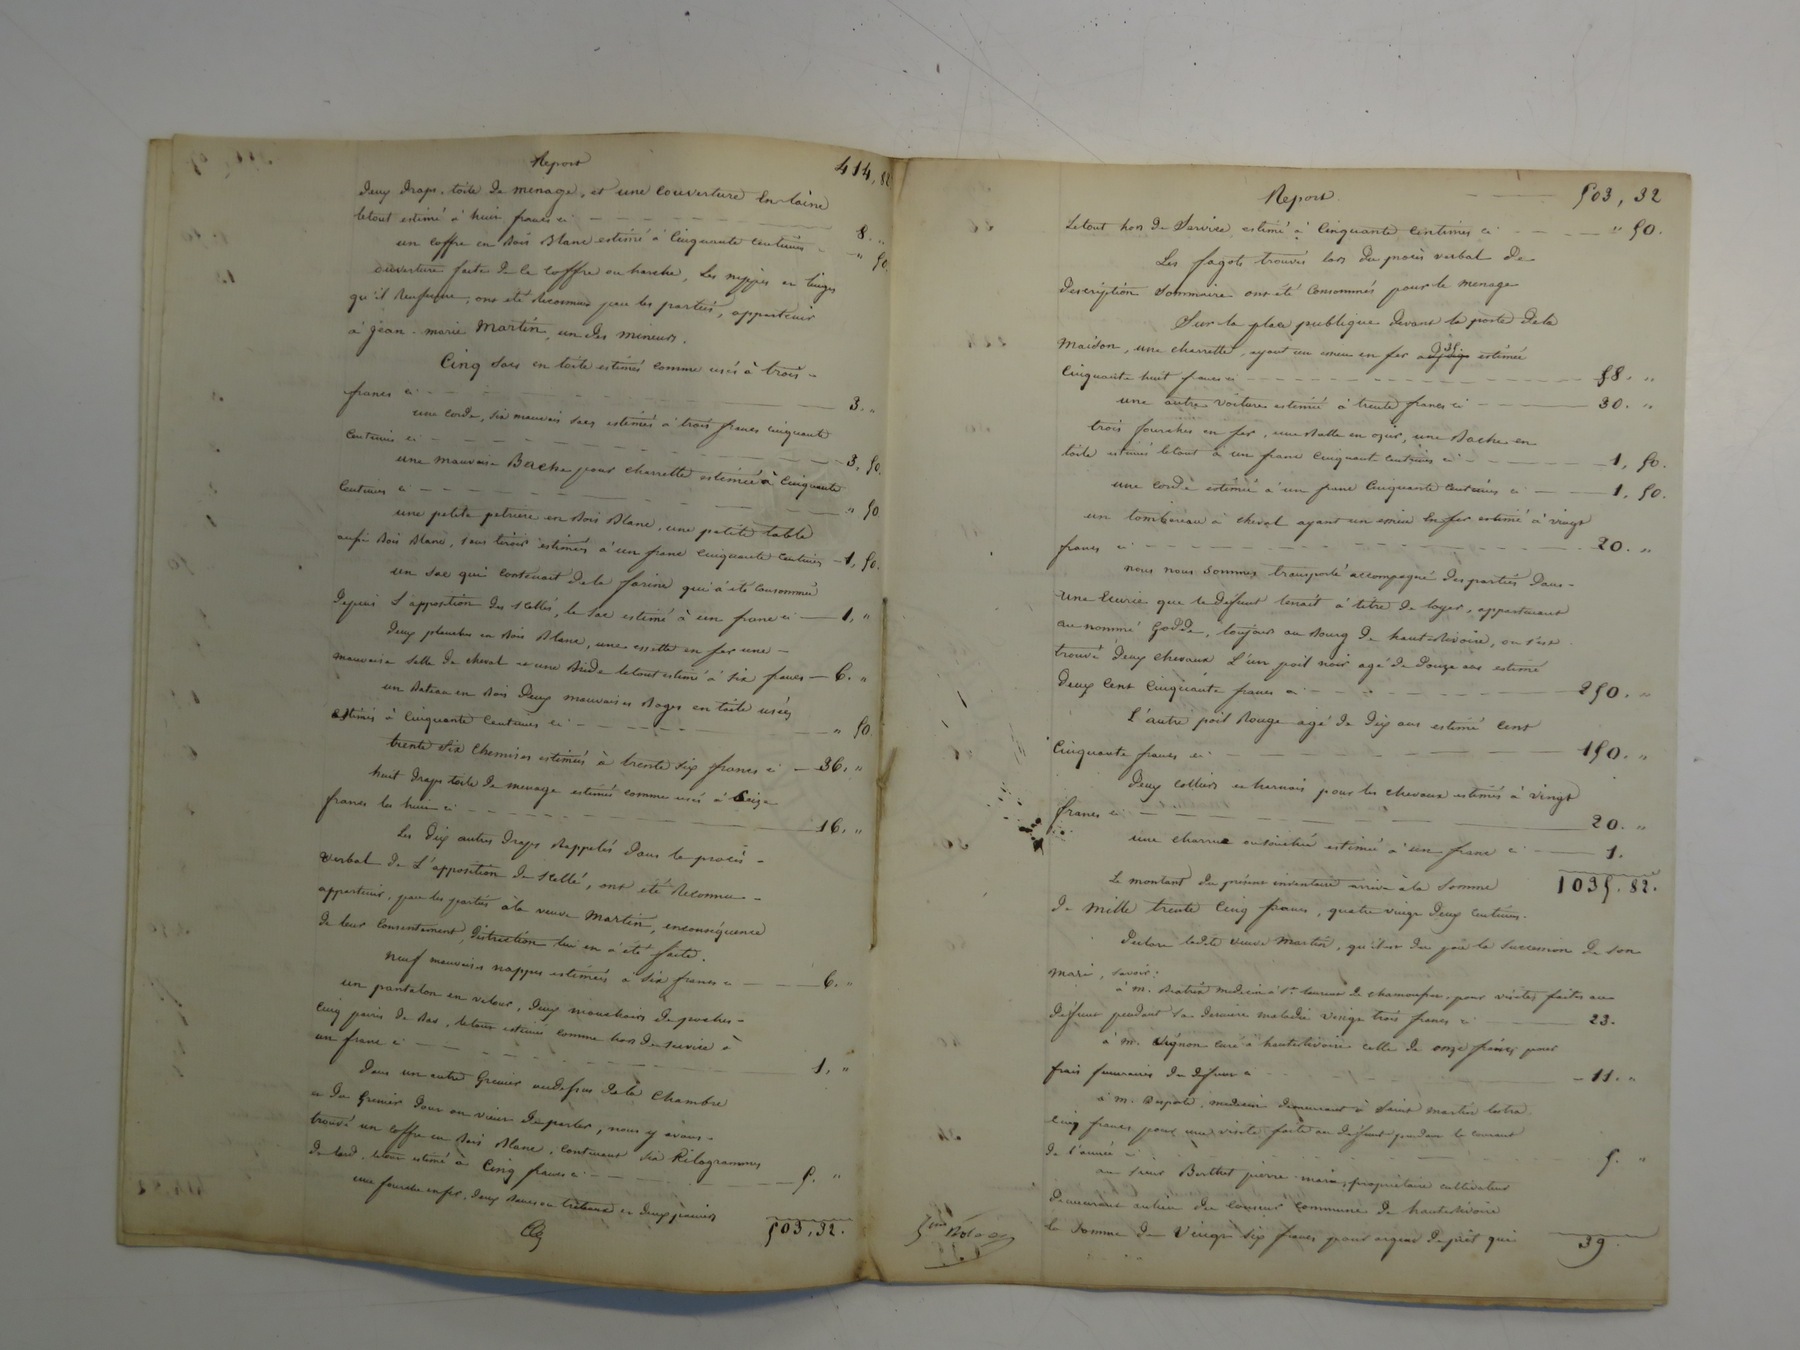 Report 414, 82
deux draps toile de menage, et une couverture en laine
letout estimé à huit francs ci 8. "
un coffre en Bois Blanc estimé à Cinquante centimes " 50.
ouverture faite de ce coffre ou harche, Les nippes et linges
qu'il renferme, ont été Reconnus par les parties, appartenir
à jean-marie Martin, un des mineurs.
Cinq Sacs en toile estimés comme usés à trois
francs ci 3. "
une corde, six mauvais sacs estimés à trois francs cinquante
centimes ci 3, 50.
une mauvaise Bache pour charrette estimée à Cinquante
Centimes ci " 50
une petite petriere en Bois Blanc, une petite table
aussi Bois Blanc, sans tiroir estimés à un franc cinquante centimes 1, 50.
un sac qui contenait de la farine qui a été Consommée
depuis L'apposition des scellés, le sac estimé à un franc ci 1, "
deux planches en Bois Blanc, une assette en fer une
mauvaise selle de cheval et une Bride letout estimé à six francs 6. "
un Rateau en Bois deux mauvaises Bages en toile usées
estimés à Cinquante Centimes ci " 50
trente six Chemises estimées à trente six francs ci 36. "
huit draps toile de menage estimés comme usés à Seize
francs les huit ci 16. "
Les dix autres draps Rappelés dans le procès
verbal de L'apposition de scellé, ont été Reconnu
appartenir, par les parties à la veuve Martin, enconséquence
de leur Consentement, distraction lui en a été faite.
neuf mauvaises nappes estimées à six francs ci 6. "
un pantalon en velour, deux mouchoirs de poches
Cinq paires de Bas, letout estimé comme hors de service à
un franc ci 1, "
dans un autre Grenier audessus de la Chambre
et du Grenier dont on vient de parler, nous y avons
trouvé un coffre en Bois Blanc, contenant six Kilogrammes
de lard, letout estimé à Cinq francs ci 5. "
une fourche en fer, deux Bancs ou treteaux et deux paniers
503, 32.
Report 503, 32
Letout hors de Service estimé à Cinquante Centimes ci " 50.
Les fagots trouvés lors du procès verbal de
description Sommaire ont été Consommés pour le menage
Sur la place publique devant la porte de la
Maison, une charrette, ayant un essieu en fer estimée
Cinquante huit francs ci 58. "
une autre voiture estimée à trente francs ci 30. "
trois fourches en fer, une Balle en osier, une Bache en
toile estimés letout à un franc Cinquante centimes ci 1, 50.
une corde estimée à un franc Cinquante Centimes ci 1, 50.
un tombereau à cheval ayant un essieu En fer estimé à vingt
francs ci 20. "
nous nous Sommes transporté accompagné des parties dans
une Ecurie que le deffunt tenait à titre de loyer, appartenant
au nommé Godde, toujours au Bourg de haute-Rivoire, on s'est
trouvé deux chevaux L'un poil noir agé de douze ans estimé
deux Cent Cinquante francs ci 250. "
L'autre poil Rouge agé de dix ans estimé Cent
Cinquante francs ci 150. "
deux colliers et harnais pour les chevaux estimés à vingt
francs ci 20. "
une charrue estimée à un franc ci 1.
Le montant du présent inventaire arrive à la Somme 1035. 82.
de Mille trente Cinq francs, quatre vingt deux Centimes.
declare ladite veuve Martin, qu'il est du par la Succession de son
mari, Savoir:
à M. medecin à St. Laurent de Chamousset, pour visites faites au
deffunt pendant Sa derniere maladie vingt trois francs ci 23.
à M. Vignon curé à haute-Rivoire celle de onze francs pour
frais funeraires du deffunt ci 11. "
à M. medecin demeurant à Saint Martin Lestra
Cinq francs pour une visite faite au deffunt pendant le courant
de l'année ci 5. "
au Sieur Berthet pierre-marie, propriétaire cultivateur
demeurant au lieu du commune de haute-Rivoire
la Somme de Vingt six francs pour argent de prêt qui 39.